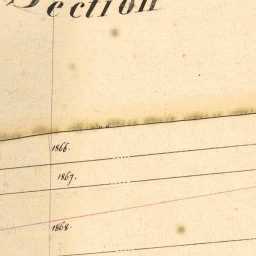 Section
1866.
1867.
1868.